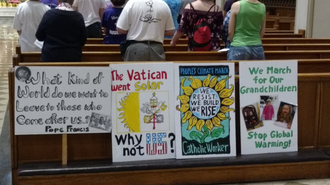 What Kind of
World do we want to
Leave to those who
Come after us?
Pope Francis
The Vatican
Went Solar
WHY
NOT US?
Peoples Climate March
WE
RESIST
WE BUILD
WE
RISE
Catholic Worker
We March
for Our
Grandchildren
Stop Global
Warming!